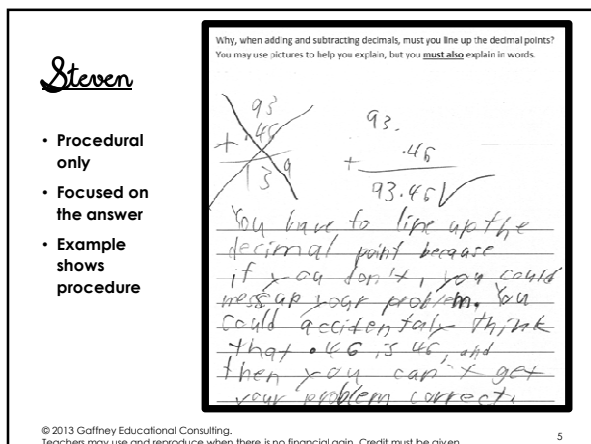 Steven
• Procedural
only
• Focused on
the answer
• Example
shows
procedure
Why, when adding and subtracting decimals, must you line up the decimal points?
You may use pictures to help you explain, but you must also explain in words.
93
+ .46
139
93.
+ .46
93.46 ✓
You have to line up the
decimal point because
if you don't, you could
mess up your problem. You
could accidentaly think
that .46 is 46, and
then you can't get
your problem correct.
© 2013 Gaffney Educational Consulting.
Teachers may use and reproduce when there is no financial gain. Credit must be given.
5